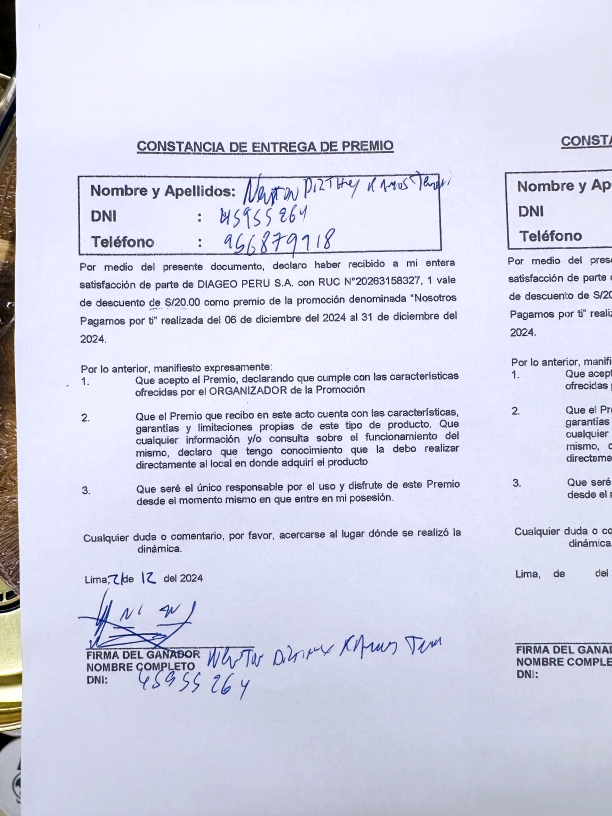 CONSTANCIA DE ENTREGA DE PREMIO
Nombre y Apellidos: Newton
DNI : 45955264
Teléfono : 966879918
Por medio del presente documento, declaro haber recibido a mi entera
satisfacción de parte de DIAGEO PERU S.A. con RUC N°20263158327, 1 vale
de descuento de S/20.00 como premio de la promoción denominada "Nosotros
Pagamos por ti" realizada del 06 de diciembre del 2024 al 31 de diciembre del
2024.
Por lo anterior, manifiesto expresamente:
1. Que acepto el Premio, declarando que cumple con las características
ofrecidas por el ORGANIZADOR de la Promoción
2. Que el Premio que recibo en este acto cuenta con las características,
garantías y limitaciones propias de este tipo de producto. Que
cualquier información y/o consulta sobre el funcionamiento del
mismo, declaro que tengo conocimiento que la debo realizar
directamente al local en donde adquirí el producto
3. Que seré el único responsable por el uso y disfrute de este Premio
desde el momento mismo en que entre en mi posesión.
Cualquier duda o comentario, por favor, acercarse al lugar dónde se realizó la
dinámica.
Lima, 21 de 12 del 2024
FIRMA DEL GANADOR
NOMBRE COMPLETO Newton
DNI: 45955264
CONSTA
Nombre y Ap
DNI
Teléfono
Por medio del prese
satisfacción de parte
de descuento de S/20
Pagamos por ti" realiz
2024.
Por lo anterior, manifi
1. Que acept
ofrecidas
2. Que el Pr
garantías
cualquier
mismo, d
directame
3. Que seré
desde el
Cualquier duda o co
dinámica
Lima, de del
FIRMA DEL GANA
NOMBRE COMPLE
DNI: